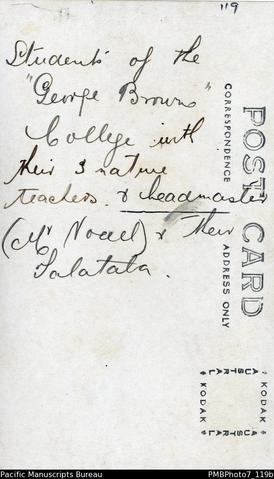 119
Students of the
"George Brown"
College with
their 3 native
teachers. & headmaster
(Mr Noall) & their
Talatala.
POST CARD
CORRESPONDENCE
ADDRESS ONLY
AUSTRAL
KODAK
AUSTRAL
KODAK
Pacific Manuscripts Bureau
PMBPhoto7_119b